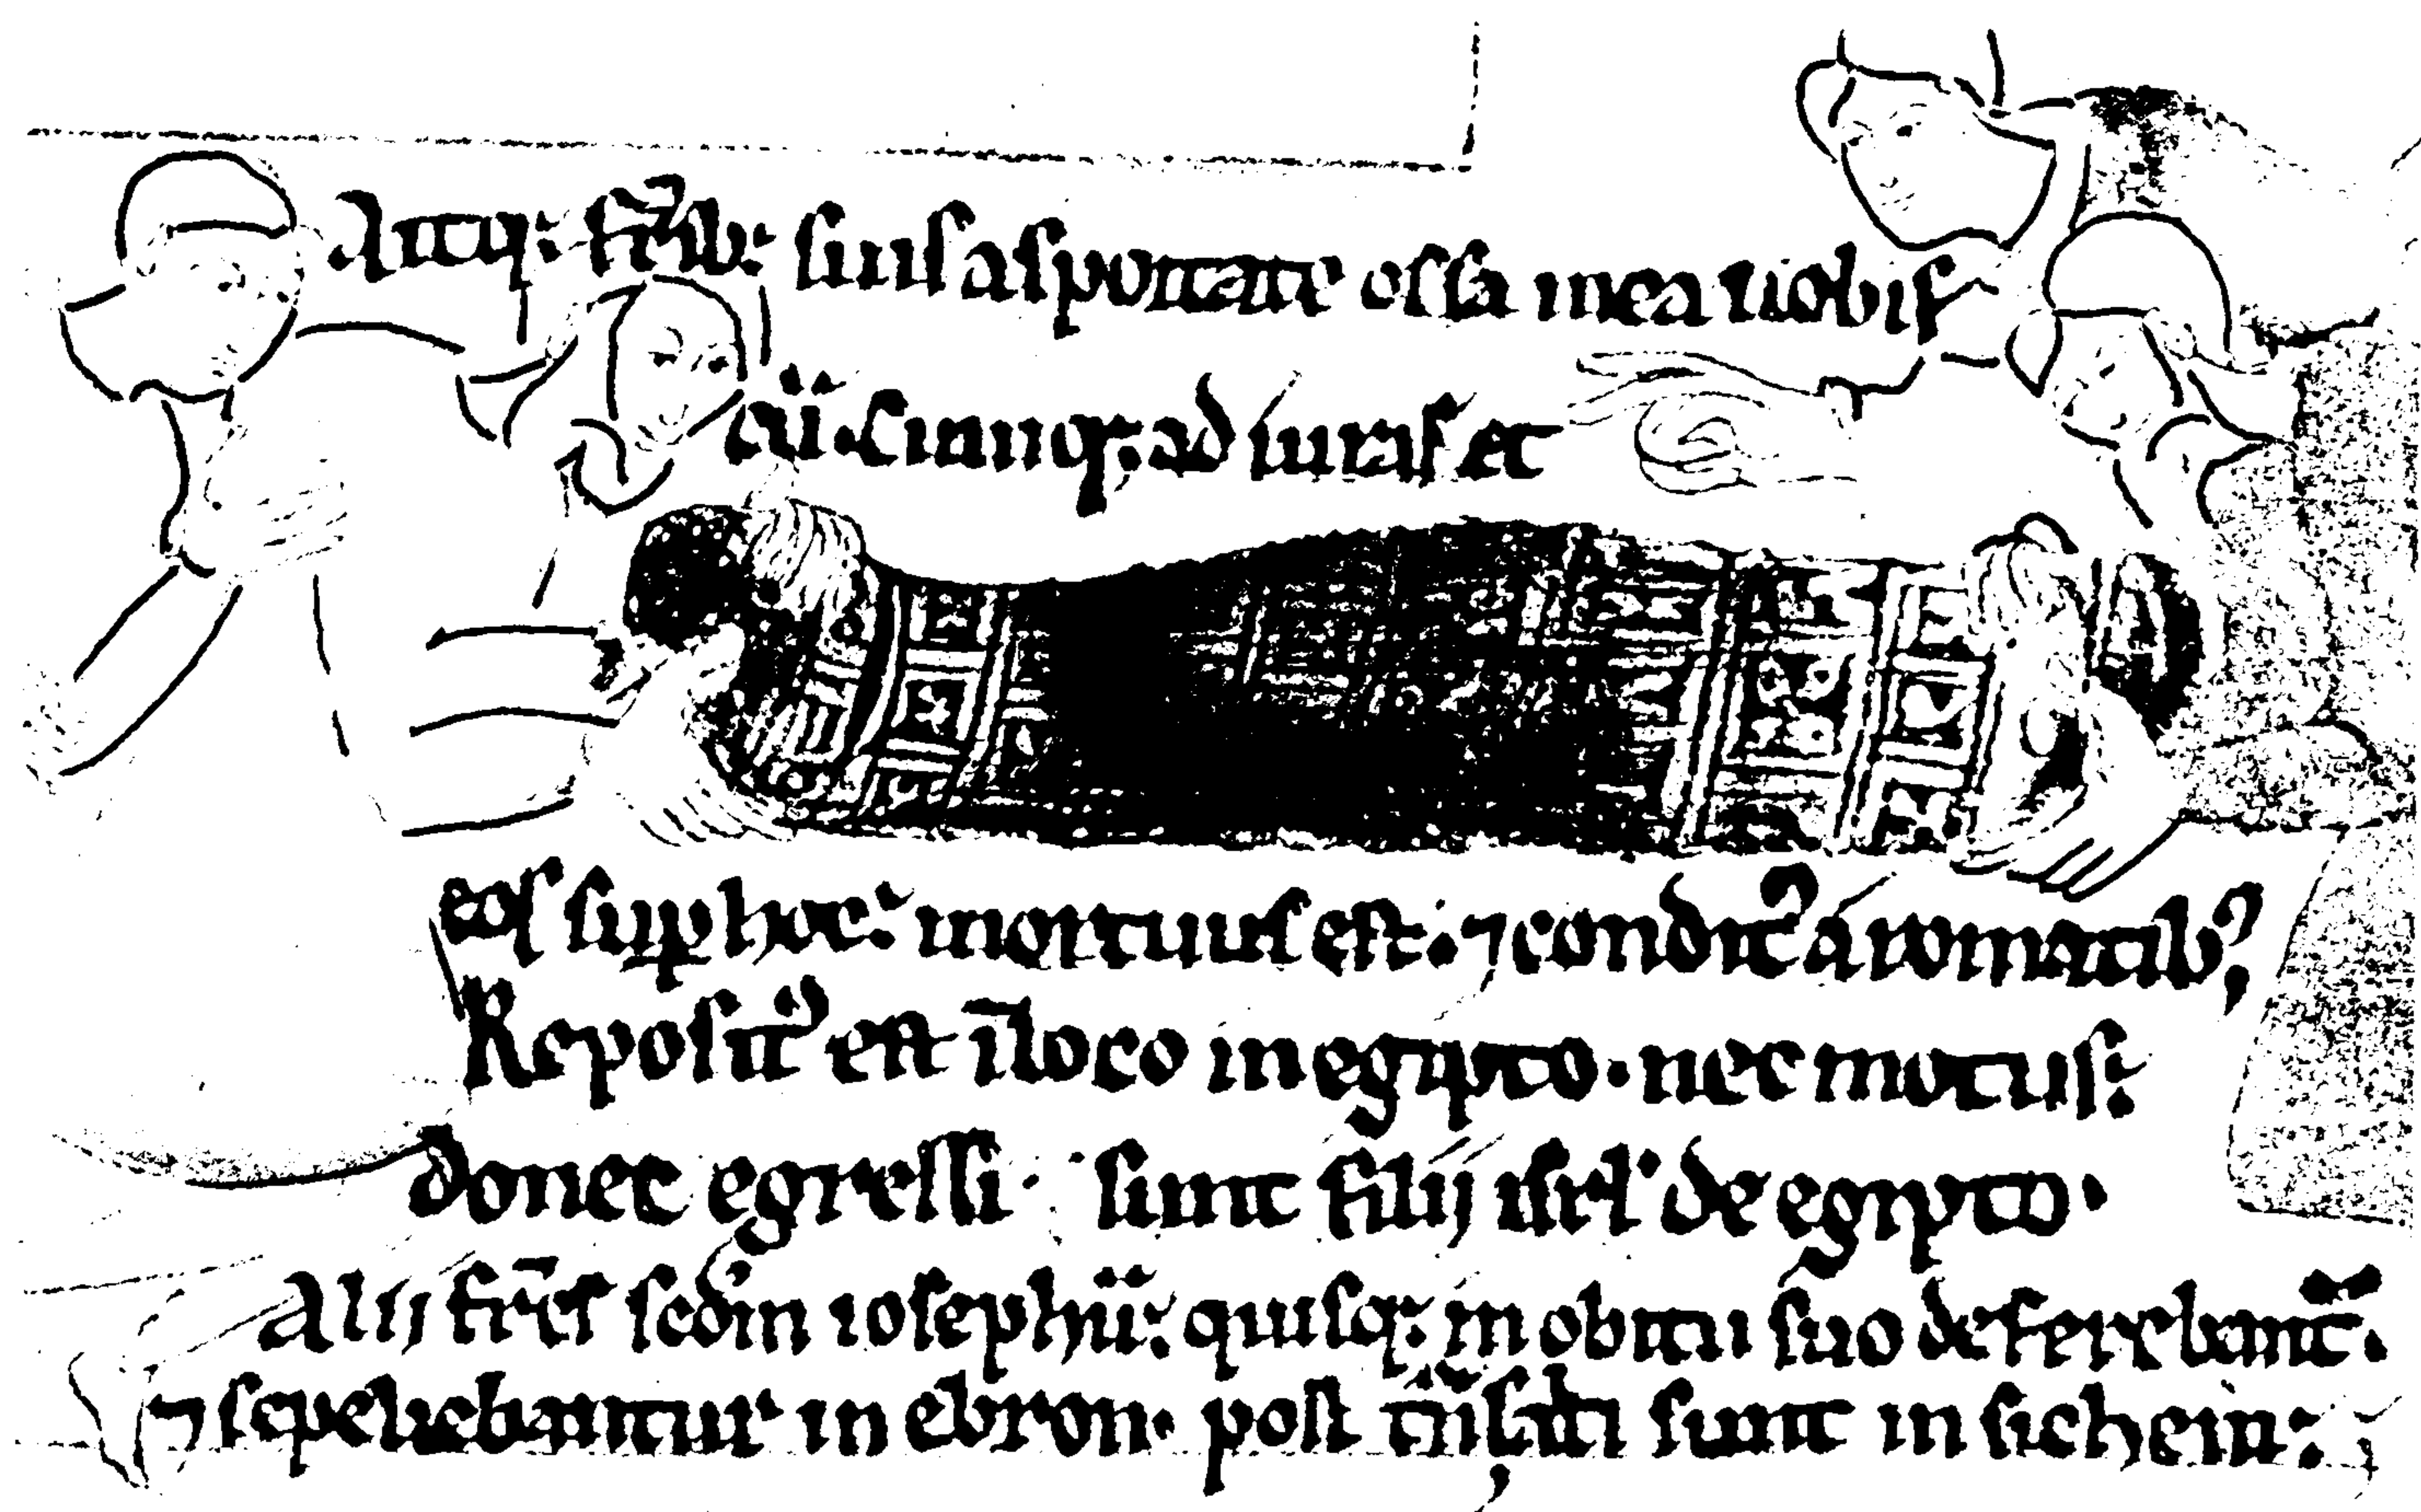 Aitq; fr̄ib; suis asportate ossa mea uobis
cū. Cumq; adiurass et
eos sup hoc: mortuus est. ⁊ condit᷒ aromatib᷒
Reposit᷒ est ī loco in egipto. nec motus:
donec egressi. sunt filij isrl' de egipto.
Alij fr̄es scdm iosephū: quisq; in obitu suo deferebant᷒.
⁊ sepeliebantur in ebron. post trāslati sunt in sichem: